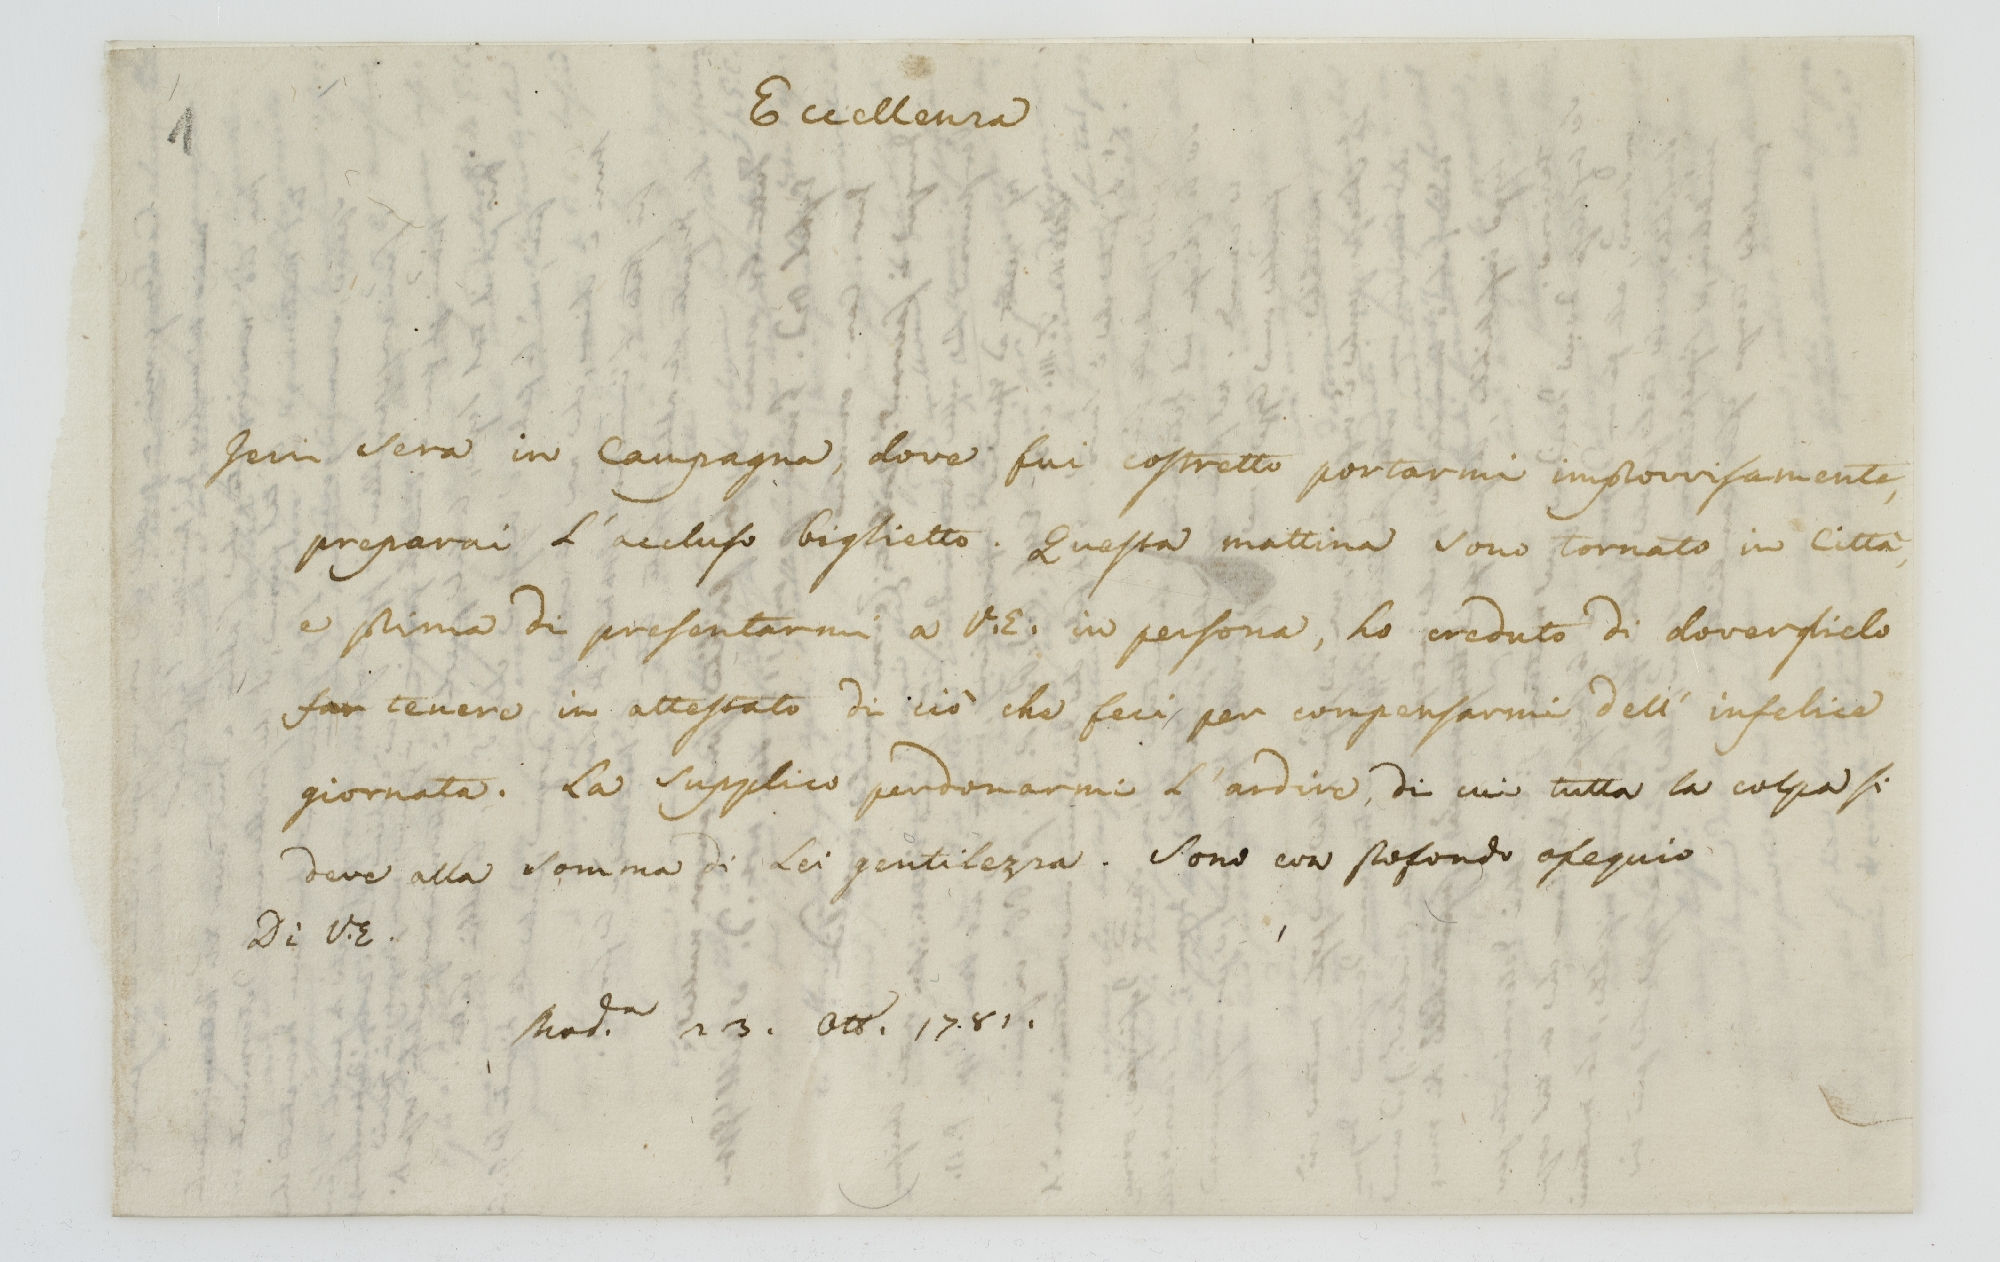 1
Eccellenza
Jeri sera in Campagna, dove fui costretto portarmi improvvisamente,
preparai l'accluso biglietto. Questa mattina sono tornato in Città,
e prima di presentarmi a V.E. in persona, ho creduto di doverglielo
far tenere in attestato di ciò che feci per compensarmi dell'infelice
giornata. La supplico perdonarmi l'ardire, di cui tutta la colpa si
deve alla somma di Lei gentilezza. Sono con profondo ossequio
Di V.E.
Mod.a 23. Ott. 1781.